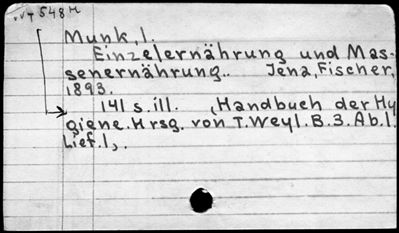 548
Munk, I.
Einzelernährung und Mas-
senernährung.. Jena, Fischer,
1893.
141 s. ill. (Handbuch der Hy
giene. Hrsg. von T. Weyl. B. 3. Ab. 1.
Lief. 1,.